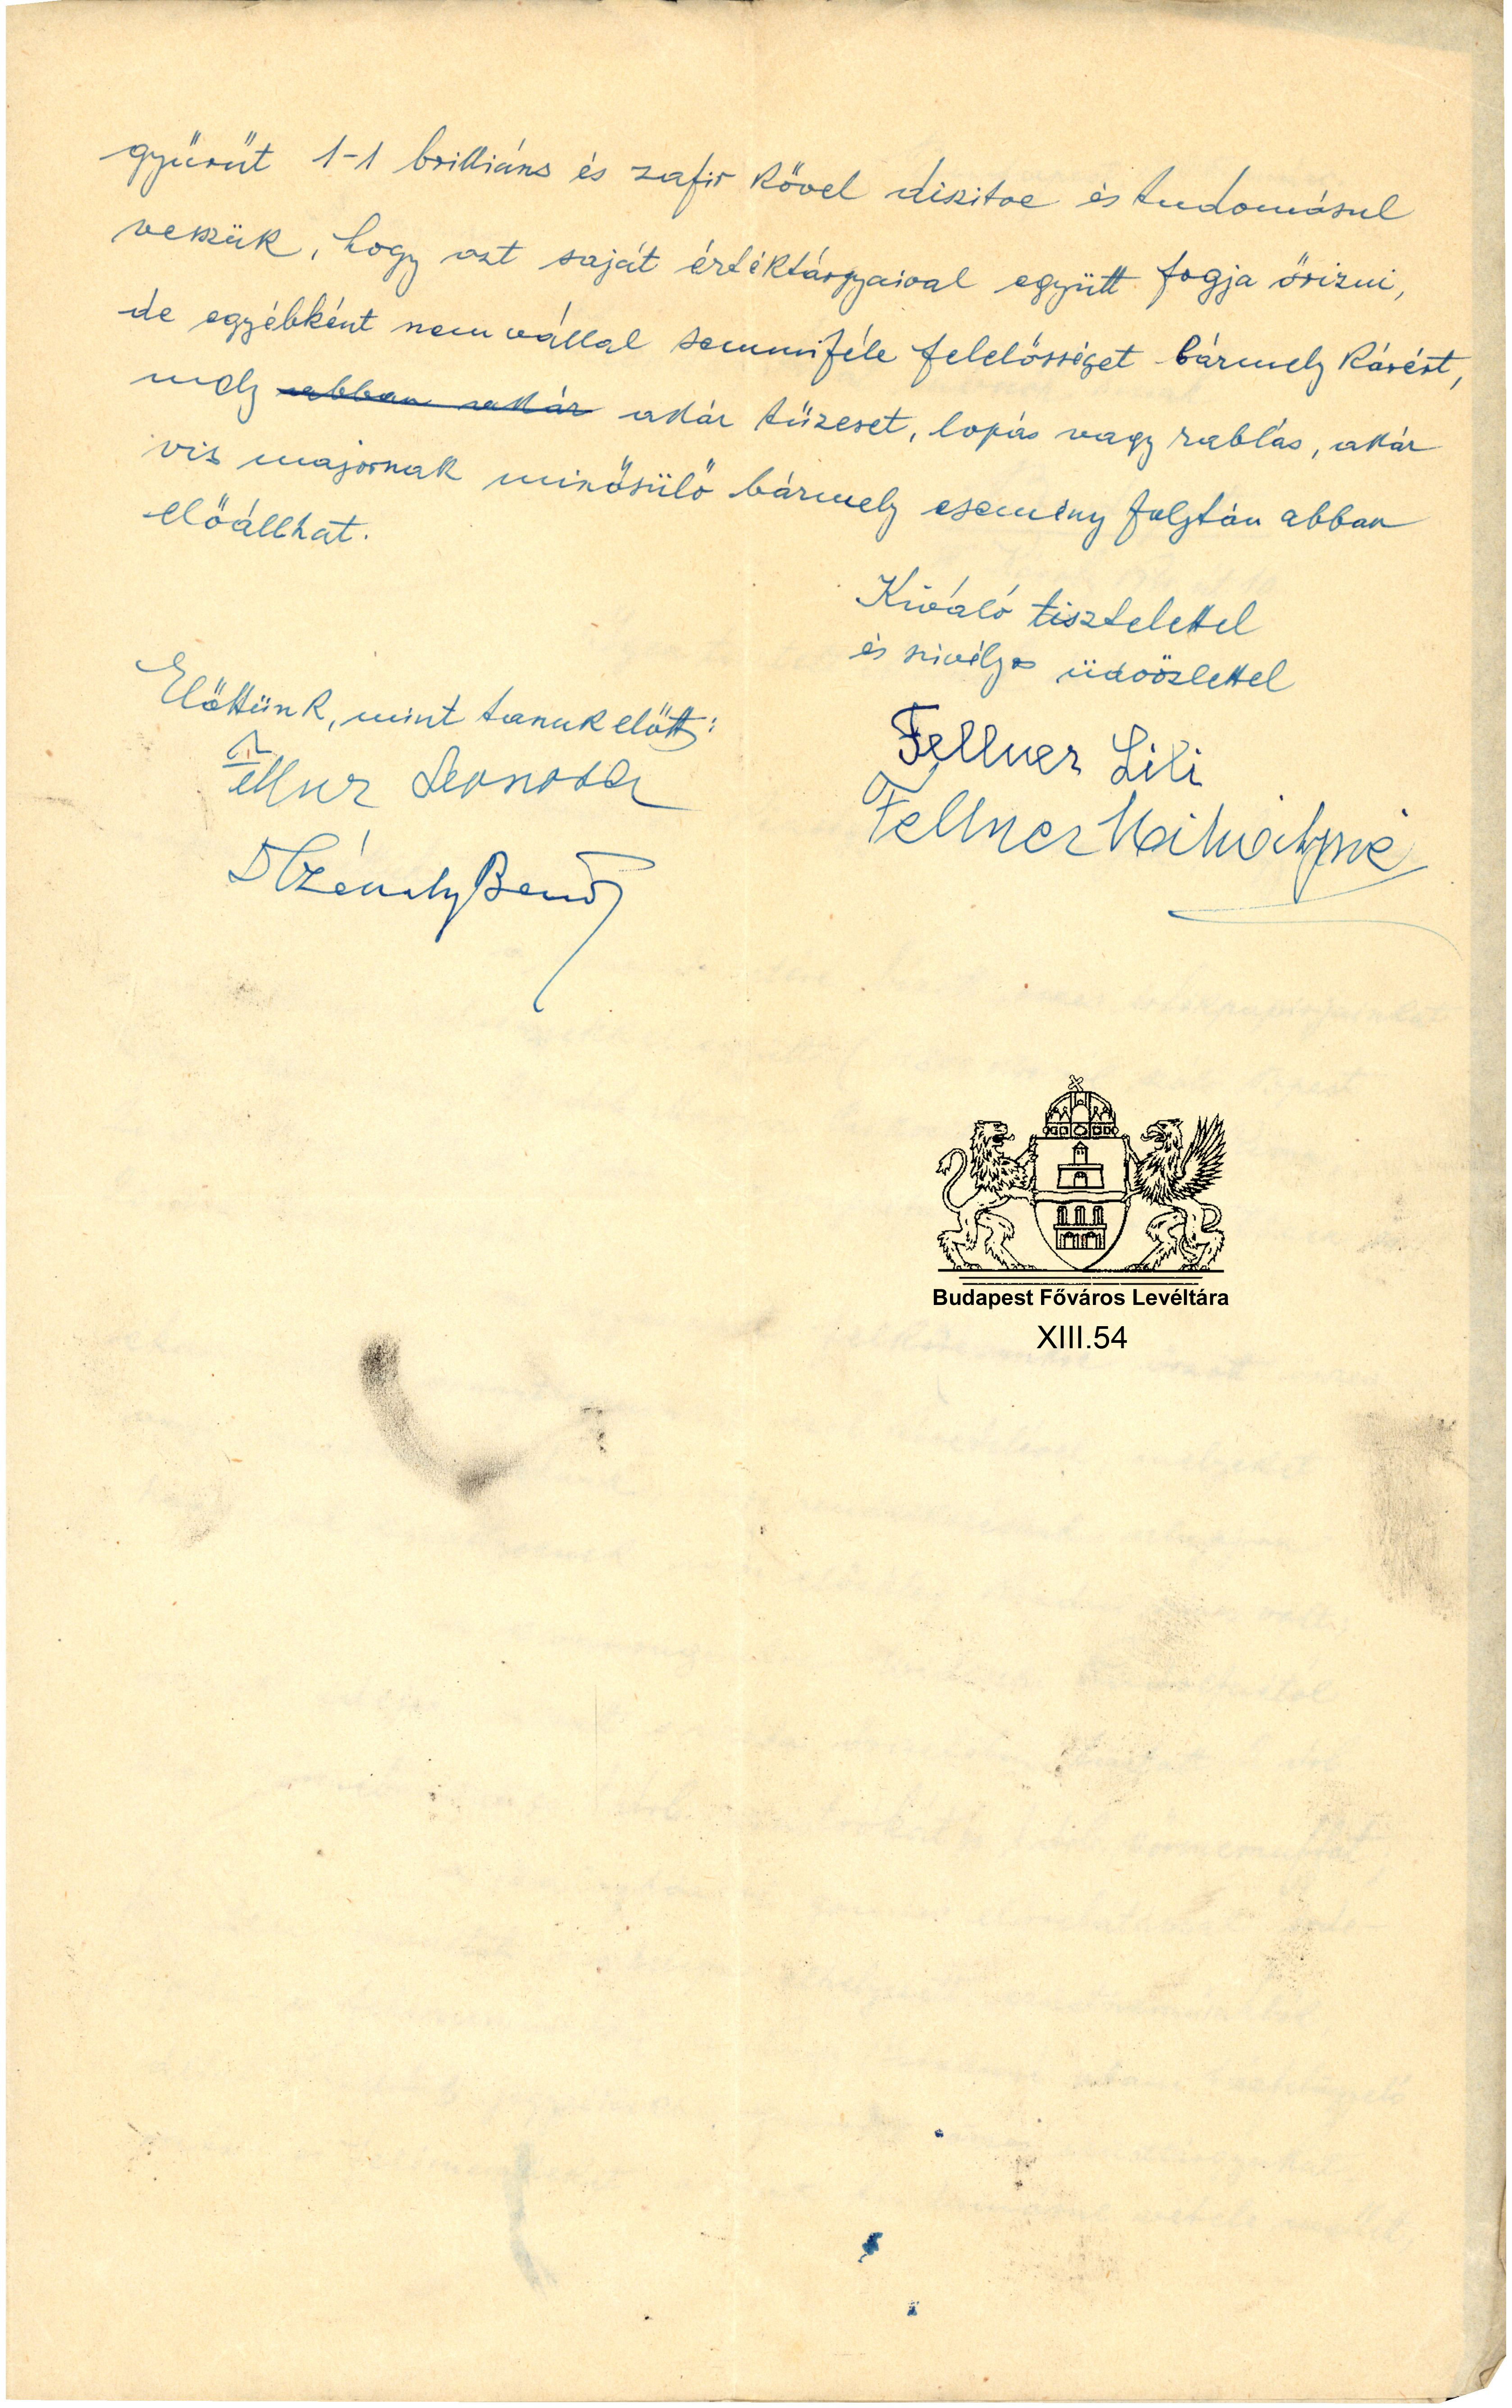 gyűrűt 1-1 brilliáns és zafir kővel diszitve és tudomásul
vesszük, hogy azt saját értéktárgyaival együtt fogja őrizni,
de egyébként nem vállal semmiféle felelősséget bármely kárért,
mely abban akár akár tűzeset, lopás vagy rablás, akár
vis majornak minősülő bármely esemény folytán abban
előállhat.
Kiváló tisztelettel
és szivélyes üdvözlettel
Előttünk, mint tanuk előtt:
Fellner Lili
Fellner Leonora
Fellner Mihályné
Budapest Főváros Levéltára
XIII.54